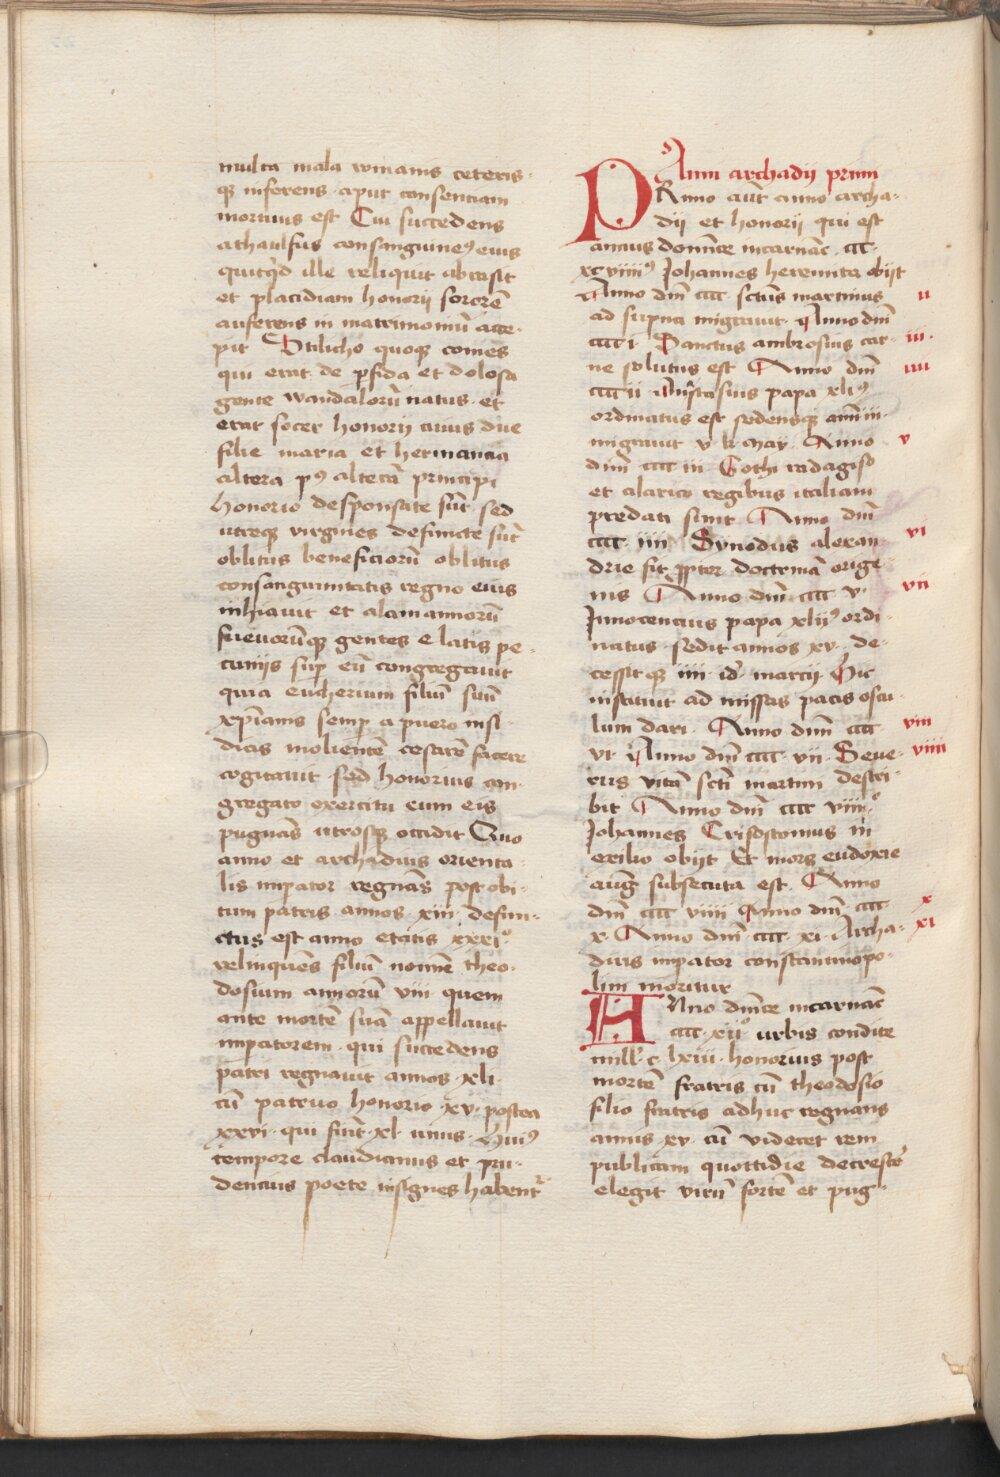 multa mala romanis ceteris
qꝫ inferens aput consentiam
mortuus est Cui succedens
athaulfus consanguineꝰ eius
quitqͥd ille reliquit abrasit
et placidiam honorij sororē
auferens in matrimoniū acce-
pit Stilicho quoqꝫ comes
qui erat de ꝑfida et dolosa
gente wandalorū natus et
erat socer honorij cuius due
filie maria et hermancia
altera pꝰ alterā principi
honorio desponsate sūt sed
utreqꝫ virgines defuncte sūt
oblitus beneficiorū oblitus
consanguinitatis regno eius
inhiauit et alamannorū
sueuorūqꝫ gentes e latis pe-
cunijs suꝑ eū congregauit
quia eucherium filiū suū
xp̄ianis semꝑ a puero insi-
dias molientē cesarē facere
cogitauit sed honorius con-
gregato exercitu eum eis
pugnās utrosqꝫ occidit Quo
anno et archadius orienta-
lis imꝑator regnās post obi-
tum patris annos xiii defun-
ctus est anno etatis xxxiͦ
relinquēs filiū nomīe theo-
dosium annorū viii quem
ante mortē suā appellauit
imꝑatorem qui succedens
patri regnauit annos xli
cū patruo honorio xv postea
xxvi qui fiūt xl unus Huiꝰ
tempore claudianus et pru-
dencius poete insignes habent᷑
Anni archadij primi
PRimo aūt anno archa-
dij et honorij qui est
annus dominice incarnac̄ ccc
xcviiiiꝰ Johannes heremita obijt
Anno dn̄i cccc sctūs martinus
ad suꝑna migrauit Anno dn̄i
cccc i Sanctus ambrosius car-
ne solutus est Anno dn̄i
cccc ii Anastasius papa xliꝰ
ordinatus est sedensqꝫ ann̄ iii
migrauit v k may Anno
dn̄i cccc iii Gothi radagiso
et alarico regibus italiam
predati sunt Anno dn̄i
cccc iiii Synodus alexan-
drie fit ꝓpter doctrinā orige
nis Anno dn̄i cccc v
Innocencius papa xliiꝰ ordi-
natus sedit annos xv de-
cessitqꝫ iiii id marcij Hic
instituit ad missas pacis oscu-
lum dari Anno dn̄i cccc
vi Anno dn̄i cccc vii Seue-
rus vitā scti martini descri-
bit Anno dn̄i cccc viiiͦ
Johannes Crisostomus in
exilio obijt Et mors eudoxie
auḡ subsecuta est Anno
dn̄i cccc viiii Anno dn̄i cccc
x Anno dn̄i cccc xi Archa-
dius imꝑator constantinopo-
lim moritur
ANno dn̄ice incarnac̄
cccc xiiͦ urbis condite
mill̓ c lxiii honorius post
mortē fratris cū theodosio
filio fratris adhuc regnans
annis xv cū videret rem
publicam quottidie decrescē
elegit virū fortē et pug-
ii
iii
iiii
v
vi
vii
viii
viiii
x
xi